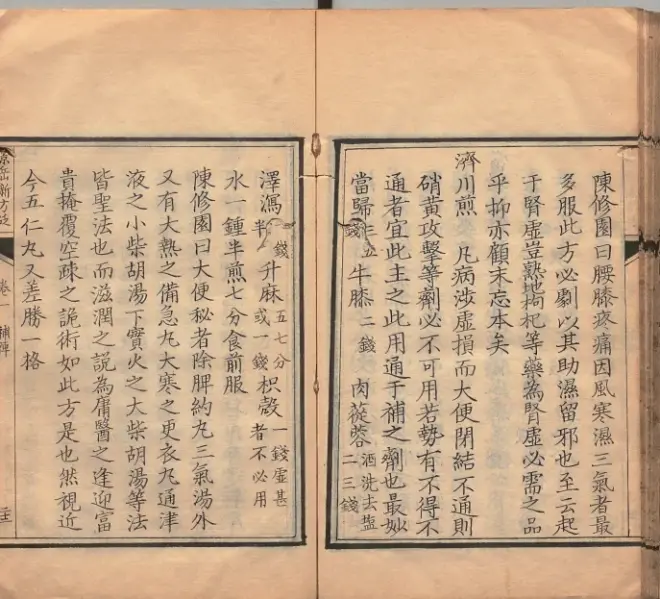 陳修園曰腰膝疼痛因風寒濕三氣者最
多服此方必劇以其助濕留邪也至云起
于腎虛豈熟地枸杞等藥為腎虛必需之品
乎抑亦顧末忘本矣
濟川煎 凡病涉虛損而大便閉結不通則
硝黃攻擊等劑必不可用若勢有不得不
通者宜此主之此用通于補之劑也最妙
當歸 三五錢 牛膝 二錢 肉蓯蓉 酒洗去盐二三錢
澤瀉 錢半 升麻 五七分或一錢 枳殼 一錢虛甚者不必用
水一鍾半煎七分食前服
陳修園曰大便秘者除脾約丸三氣湯外
又有大熱之備急丸大寒之更衣丸通津
液之小柴胡湯下實火之大柴胡湯等法
皆聖法也而滋潤之說為庸醫之逢迎富
貴掩覆空疎之詭術如此方是也然視近
今五仁丸又差勝一格
景岳新方砭 卷一 補陣